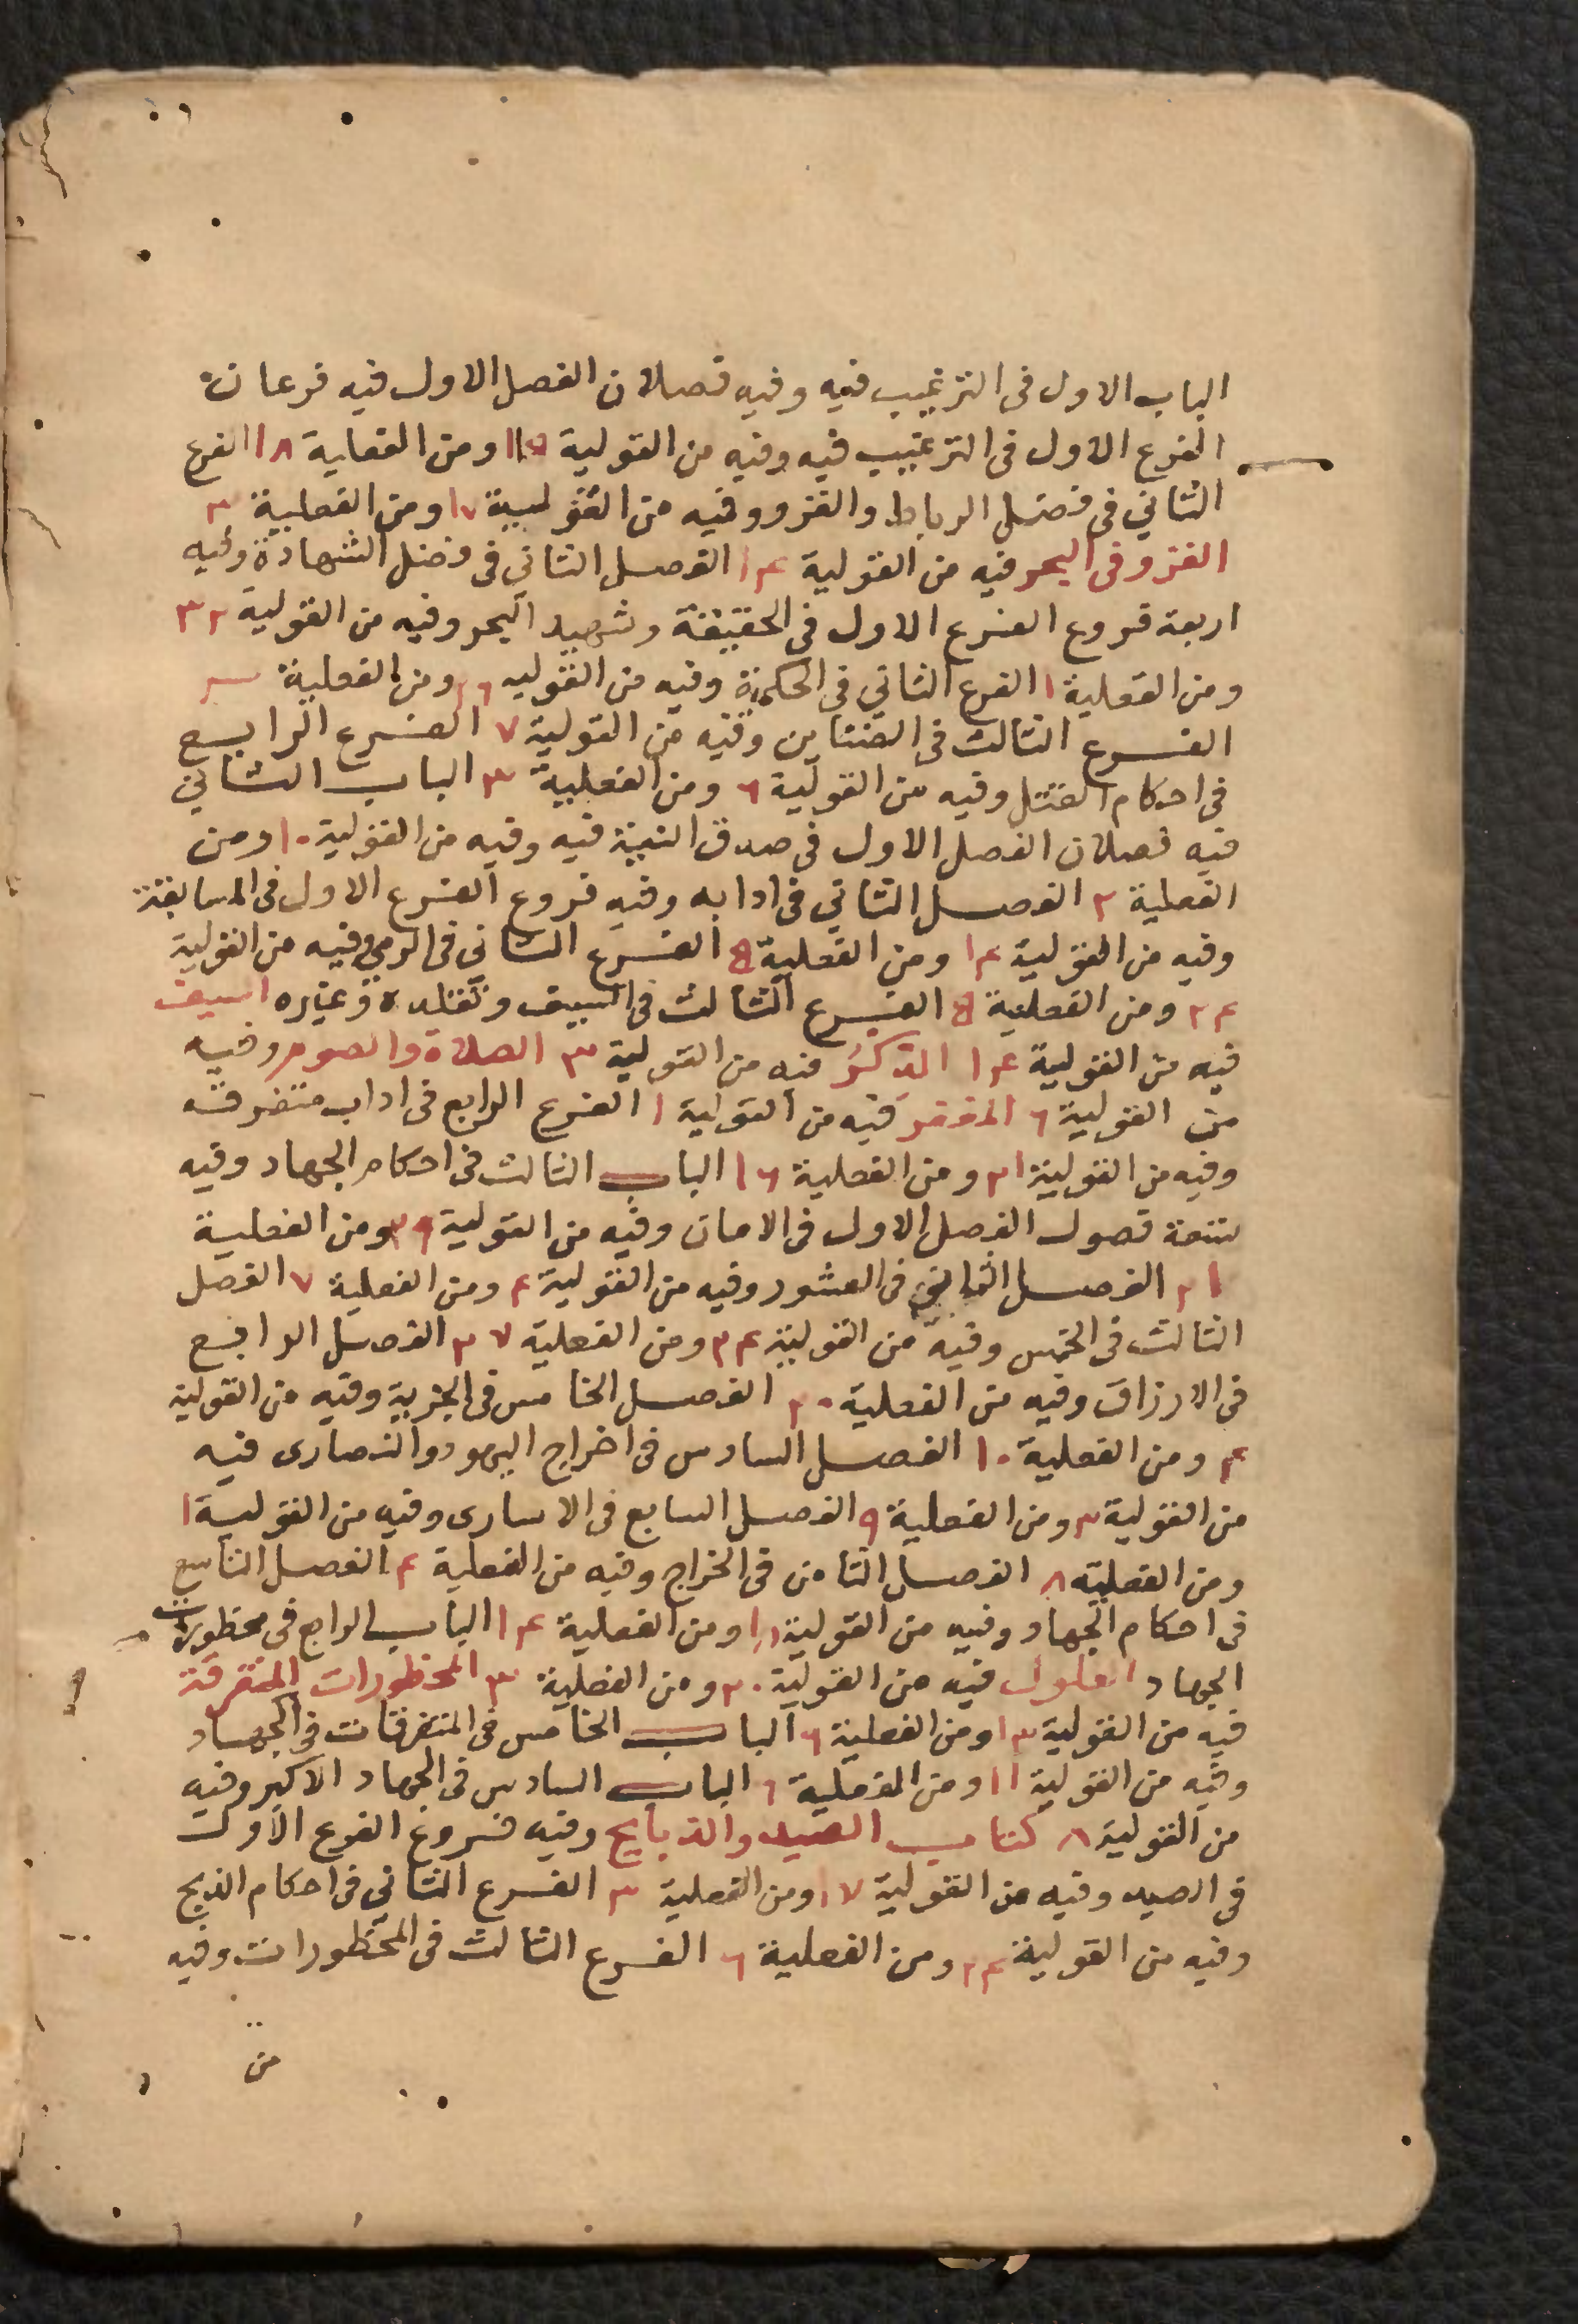 الباب الاول فى الترغيب فيه وفيه فصلان الفصل الاول فيه فرعان
الفرع الاول فى الترغيب فيه وفيه من القولية ومن الفعلية ١٨ الفرع
الثاني فى فضل الرباط والغزو وفيه من القولية ١٧ ومن الفعلية ٣
الغزو فى البحر فيه من القولية ١٤ الفصل الثاني فى فضل الشهادة وفيه
اربعة فروع الفرع الاول فى الحقيقة وشهيد البحر وفيه من القولية ٣٢
ومن الفعلية ١ الفرع الثاني فى الحكمية وفيه من القوليه ٢٦ ومن الفعلية
الفرع الثالث فى وفيه من القولية ٧ الفرع الرابع
فى احكام القتل وفيه من القولية ٦ ومن الفعلية ٣ الباب الثاني
فيه فصلان الفصل الاول فى صدق النية فيه وفيه من القولية ١٠ ومن
الفعلية ٢ الفصل الثاني فى ادابه وفيه فروع الفرع الاول فى المسابقة
وفيه من القولية ١٤ ومن الفعلية ٥ الفرع الثاني فى الرمي وفيه من القولية
٢٤ ومن الفعلية ٥ الفرع الثالث فى السيف وتقلده وغيره السيف
فيه من القولية ١٤ الذكر فيه من القولية ٣ الصلاة والصوم وفيه
من القولية ٦ فيه من القولية ١ الفرع الرابع فى اداب متفرقه
وفيه من القولية ٢١ ومن الفعلية ١٦ الباب الثالث فى احكام الجهاد وفيه
تسعة فصول الفصل الاول فى الامان وفيه من القولية ومن الفعلية
٢١ الفصل الثاني فى العشور وفيه من القولية ٤ ومن الفعلية ٧ الفصل
الثالث فى الخمس وفيه من القولية ٢٤ ومن الفعلية ٣٧ الفصل الرابع
فى الارزاق وفيه من الفعلية ٢٠ الفصل الخامس فى الجزية وفيه من القولية
٤ ومن الفعلية ١٠ الفصل السادس فى اخراج اليهود والنصارى فيه
من القولية ٣ ومن الفعلية ٩ الفصل السابع فى الاسارى وفيه من القولية ١
ومن الفعلية ٨ الفصل الثامن فى الخراج وفيه من الفعلية ٤ الفصل التاسع
فى احكام الجهاد وفيه من القولية ومن الفعلية ١٤ الباب الرابع فى محظورات
الجهاد الغلول فيه من القولية ٢٠ ومن الفعلية ٣ المحظورات المتفرقة
فيه من القولية ١٣ ومن الفعلية ٦ الباب الخامس فى المتفرقات فى الجهاد
وفيه من القولية ١١ ومن الفعلية ٦ الباب السادس فى الجهاد الاكبر وفيه
من القولية ٨ كتاب الصيد والذبايح وفيه فروع الفرع الاول
فى الصيد وفيه من القولية ١٧ ومن الفعلية ٣ الفرع الثاني فى احكام الذبح
وفيه من القولية ٢٤ ومن الفعلية ٦ الفرع الثالث فى المحظورات وفيه
من